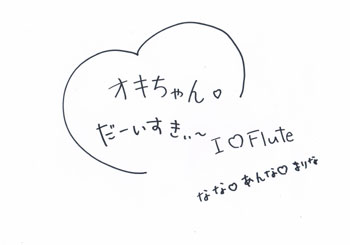 オキちゃん♡
だーいすきぃ~
I♡Flute
なな♡あんな♡まりな